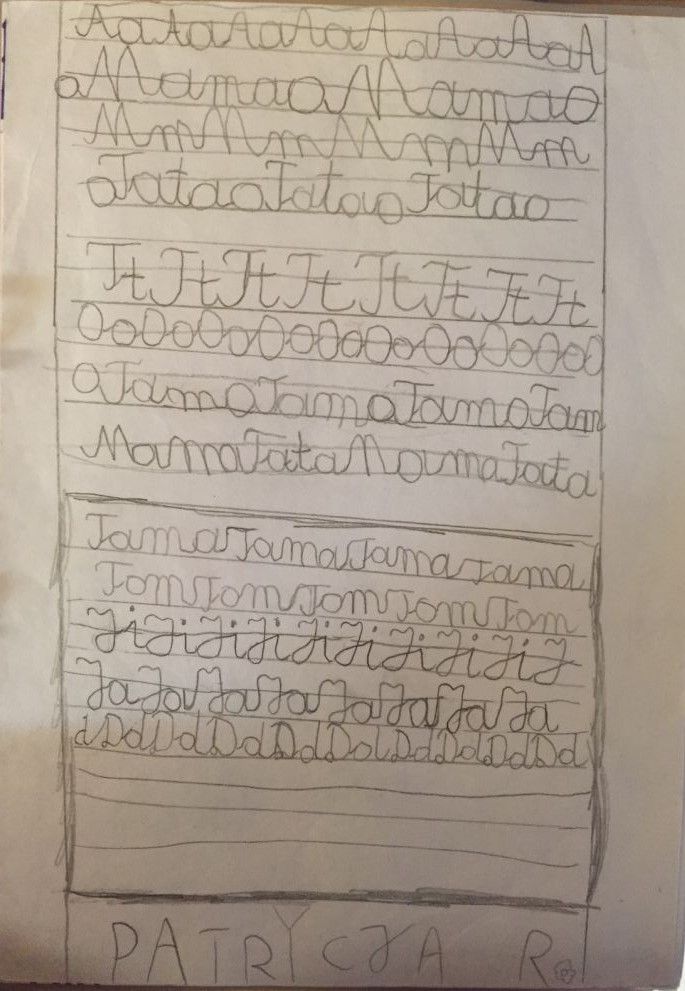 AaAaAaAaAaAaAaA
oMamaoMamao
MmMmMmMm
oTataoTataoTatao
TtTtTtTtTtTtTtTt
OoOoOoOoOoOoOoOoOoO
oTamaoTamaoTamaoTam
MamaTataMamaTata
TamaTamaTamaTama
TomTomTomTomTom
JiJiJiJiJiJiJiJiJiJ
JaJaJaJaJaJaJaJa
dDdDdDdDdDdDdDdDdDd
PATRYCJA R.